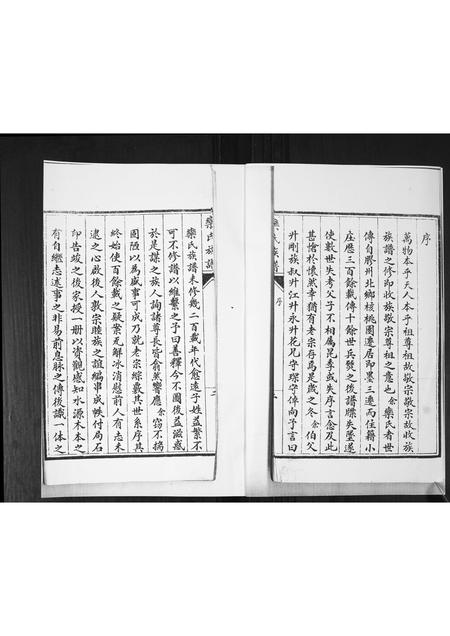 序
萬物本乎天人本乎祖尊祖故敬宗敬宗故收族
族譜之修即收族敬宗尊祖之意也余欒氏者世
傳自膠州北鄉核桃園遷居即墨三遷而住藉小
庄歷三百餘載傳十餘世兵燹之後譜牒失墜遂
使數世失考父子不相屬昆季或失序言念及此
甚愴於懷然幸猶有老宗存焉是歲之冬余伯父
升剛族叔升江升永升花兄守璨守倬向予言曰
欒氏族譜
序
一
欒氏族譜未修幾二百載年代愈遠子姓益繁不
可不修譜以維繫之予曰善釋今不圖後益滋惑
於是謀之族人詢諸尊長皆俞然響應余窃不揣
固陋以為盛事可成乃就老宗綜覈其世系序其
終始使百餘載之疑案瓦解冰消慰前人有志未
逮之心啟後人敦宗睦族之誼編事成帙付局石
印告竣之後家授一冊以資觀感知水源木本之
有自繼志述事之非易前息脉之傳後識一体之
欒氏族譜
二